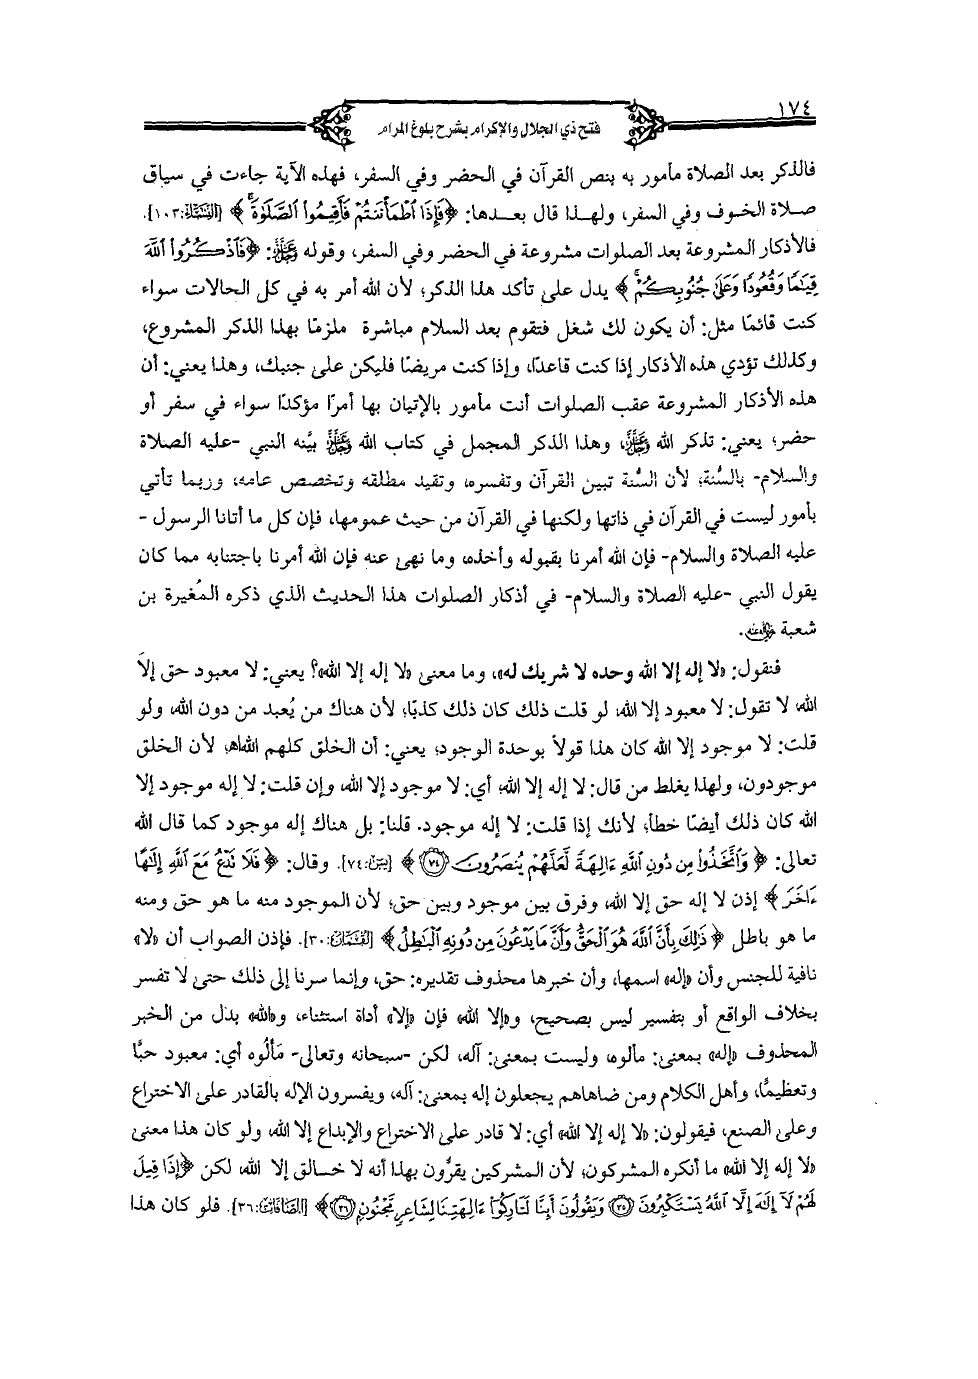 ١٧٤
فتح ذي الجلال والإكرام بشرح بلوغ المرام
فالذكر بعد الصلاة مأمور به بنص القرآن في الحضر وفي السفر، فهذه الآية جاءت في سياق
صلاة الخوف وفي السفر، ولهذا قال بعدها: ﴿فَإِذَا ٱطْمَأْنَنتُمْ فَأَقِيمُوا۟ ٱلصَّلَوٰةَ﴾ [النساء:١٠٣].
فالأذكار المشروعة بعد الصلوات مشروعة في الحضر وفي السفر، وقوله ﷻ: ﴿فَٱذْكُرُوا۟ ٱللَّهَ
قِيَٰمًا وَقُعُودًا وَعَلَىٰ جُنُوبِكُمْ﴾ يدل على تأكد هذا الذكر؛ لأن الله أمر به في كل الحالات سواء
كنت قائمًا مثل: أن يكون لك شغل فتقوم بعد السلام مباشرة ملزمًا بهذا الذكر المشروع،
وكذلك تؤدي هذه الأذكار إذا كنت قاعدًا، وإذا كنت مريضًا فليكن على جنبك، وهذا يعني: أن
هذه الأذكار المشروعة عقب الصلوات أنت مأمور بالإتيان بها أمرًا مؤكدًا سواء في سفر أو
حضر؛ يعني: تذكر الله ﷻ، وهذا الذكر المجمل في كتاب الله ﷻ بيَّنه النبي -عليه الصلاة
والسلام- بالسُّنة؛ لأن السُّنة تبين القرآن وتفسره، وتقيد مطلقه وتخصص عامه، وربما تأتي
بأمور ليست في القرآن في ذاتها ولكنها في القرآن من حيث عمومها، فإن كل ما أتانا الرسول -
عليه الصلاة والسلام- فإن الله أمرنا بقبوله وأخذه، وما نهى عنه فإن الله أمرنا باجتنابه مما كان
يقول النبي -عليه الصلاة والسلام- في أذكار الصلوات هذا الحديث الذي ذكره المُغيرة بن
شعبة رضي الله عنه.
فنقول: «لا إله إلا الله وحده لا شريك له»، وما معنى «لا إله إلا الله»؟ يعني: لا معبود حق إلاَّ
الله، لا تقول: لا معبود إلا الله، لو قلت ذلك كان ذلك كذبًا؛ لأن هناك من يُعبد من دون الله، ولو
قلت: لا موجود إلا الله كان هذا قولاً بوحدة الوجود؛ يعني: أن الخلق كلهم اللهاهـ؛ لأن الخلق
موجودون، ولهذا يغلط من قال: لا إله إلا الله؛ أي: لا موجود إلا الله، وإن قلت: لا إله موجود إلا
الله كان ذلك أيضًا خطأ؛ لأنك إذا قلت: لا إله موجود. قلنا: بل هناك إله موجود كما قال الله
تعالى: ﴿وَٱتَّخَذُوا۟ مِن دُونِ ٱللَّهِ ءَالِهَةً لَّعَلَّهُمْ يُنصَرُونَ ٧٤﴾ [يس:٧٤]. وقال: ﴿فَلَا تَدْعُ مَعَ ٱللَّهِ إِلَٰهًا
ءَاخَرَ﴾ إذن لا إله حق إلا الله، وفرق بين موجود وبين حق؛ لأن الموجود منه ما هو حق ومنه
ما هو باطل ﴿ذَٰلِكَ بِأَنَّ ٱللَّهَ هُوَ ٱلْحَقُّ وَأَنَّ مَا يَدْعُونَ مِن دُونِهِ ٱلْبَٰطِلُ﴾ [لقمان:٣٠]. فإذن الصواب أن «لا»
نافية للجنس وأن «إله» اسمها، وأن خبرها محذوف تقديره: حق، وإنما سرنا إلى ذلك حتى لا تفسر
بخلاف الواقع أو بتفسير ليس بصحيح، و«إلا الله» فإن «إلا» أداة استثناء، و«الله» بدل من الخبر
المحذوف «إله» بمعنى: مألوه، وليست بمعنى: آله، لكن -سبحانه وتعالى- مَأْلُوه أي: معبود حبًّا
وتعظيمًا، وأهل الكلام ومن ضاهاهم يجعلون إله بمعنى: آله، ويفسرون الإله بالقادر على الاختراع
وعلى الصنع، فيقولون: «لا إله إلا الله» أي: لا قادر على الاختراع والإبداع إلا الله، ولو كان هذا معنى
«لا إله إلا الله» ما أنكره المشركون؛ لأن المشركين يقرُّون بهذا أنه لا خالق إلا الله، لكن ﴿إِذَا قِيلَ
لَهُمْ لَآ إِلَٰهَ إِلَّا ٱللَّهُ يَسْتَكْبِرُونَ ٣٥ وَيَقُولُونَ أَئِنَّا لَتَارِكُوٓا۟ ءَالِهَتِنَا لِشَاعِرٍ مَّجْنُونٍ ٣٦﴾ [الصافات:٣٦]. فلو كان هذا